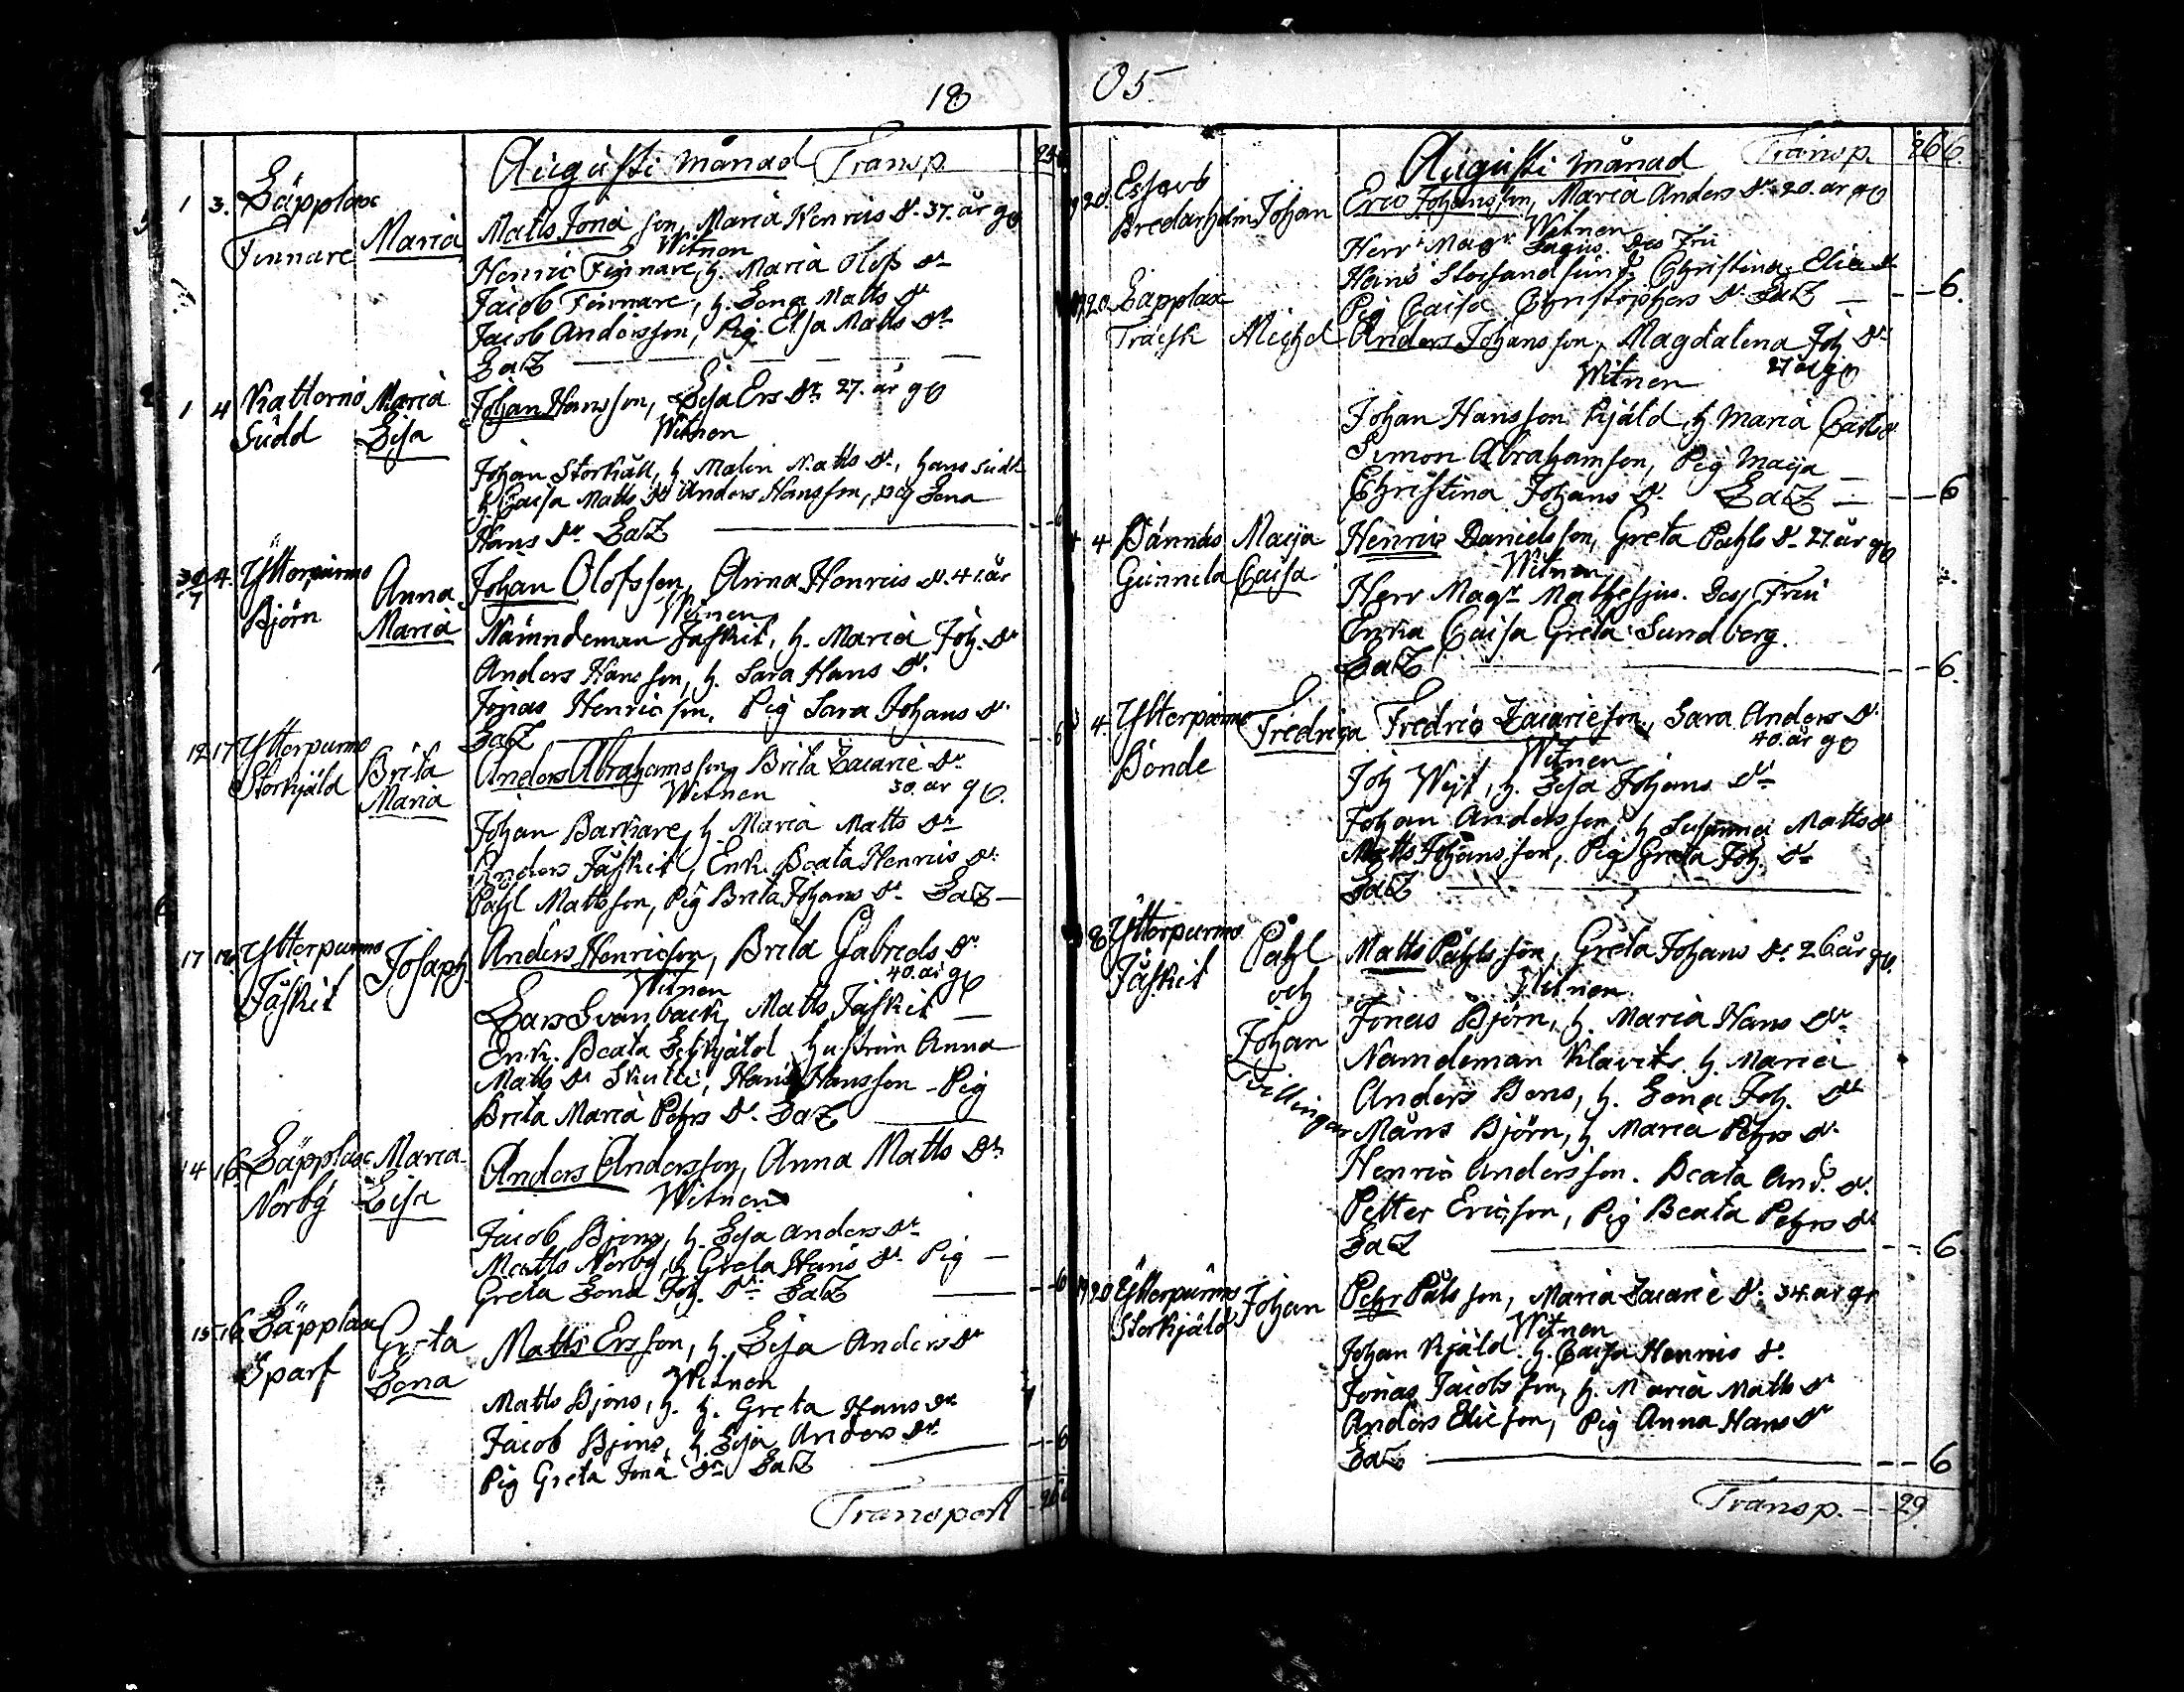 18
Augusti månad Transp
1 3. Läpplax
Finnare Maria
Matts Jonä son, Maria Henrics dr. 37. år g
Witnen
Henric Finnare, h. Maria Olofs dr
Jacob Finnare, h. Lena Matts dr
Jacob Andersson, Pig. Elsa Matts dr
LaZ
1 4 Katternö Maria
Sudd Lisa
Johan Hansson, Lisa Ers dr 27. år g
Witnen
Johan Storkäll, h Malin Matts dr, Hans Sudd
h Caisa Matts dr Anders Hansson, pig Lena
Hans dr. LaZ
30/7 4. Ytterpurmo Anna
Björn Maria
Johan Olofsson, Anna Henrics dr. 41. år
Witnen
Nämndeman Jäskit, h. Maria Joh. dr
Anders Hansson, h. Sara Hans dr.
Jonas Henricson, Pig Sara Johans dr
LaZ 6
12 17 Ytterpurmo Brita
Storkjäld Maria
Anders Abrahamsson, Brita Zacarie dr
Witnen 30. år g
Johan Barkare, h Maria Matts dr
Anders Jäskit, Enk. Beata Henrics dr
Pahl Mattsson, Pig Brita Johans dr. LaZ
17 Ytterpurmo Josaph
Jäskit
Anders Henricson, Brita Gabriels dr
40. år g
Witnen
Lars Svanback, Matts Jäskit
Enk. Beata hustrun Anna
Matts dr Skutti, Hans Hansson Pig
Brita Maria Pehrs dr. LaZ
14 16 Läpplax Maria
Norby Lisa
Anders Andersson, Anna Matts dr
Witnen
Jacob Bjons, h. Lisa Anders dr
Matts Norby, h Greta Hans dr Pig
Greta Lena Joh. dr LaZ 6
15 16 Läpplax Greta
Sparf Lena
Matts Ersson, h. Lisa Anders dr
Witnen
Matts Bjons, h. h. Greta Hans dr
Jacob Bjons, h. Lisa Anders dr
Pig Greta Jonä dr LaZ 6
Transport
05
Augusti månad Transp. 266.
20 Johan
Eric Johansson, Maria Anders dr 20. år g
Witnen
Herr Magr. Des Fru
Hans Storsand hust. Christina Elia dr
Pig Caisa Christophers dr LaZ 6.
20 Läpplax
Träsk Michel
Anders Johansson, Magdalena Joh dr
27 år g
Witnen
Johan Hansson Kjäld, h Maria Carls dr
Simon Abrahamson, Pig Maija
Christina Johans dr. LaZ 6
4 Bännäs Maija
Gunnela Caisa
Henric Danielsson, Greta Pahls dr 27. år g
Witnen
Herr Magr. Mathesius. Des Fru
Enka Caisa Greta Sundberg.
LaZ 6.
4. Ytterpurmo Fredrica
Bonde
Fredric Zacarieson, Sara Anders dr
40. år g
Witnen
Joh Wist, h. Lisa Johans dr
Johan Andersson, h Susanna Matts dr
Matts Johansson, Pig Greta Joh. dr
LaZ
8 Ytterpurmo Påhl
Jäskit och
Johan
Tvillingar
Matts Påhlsson, Greta Johans dr 26 år g
Witnen
Jonas Björn, h. Maria Hans dr
Namdeman Klavits h. Maria
Anders Bens, h. Lena Joh. dr
Måns Björn, h. Maria Pehrs dr
Henric Andersson. Beata And. dr
Petter Ericson, Pig Beata Pehrs dr
LaZ 6.
20 Ytterpurmo Johan
Storkjäld
Pehr Pålsson, Maria Zacarie dr. 34. år g
Witnen
Johan Kjäld. h. Caisa Henrics dr.
Jonas Jacobsson, h. Maria Matts dr
Anders Elieson, Pig Anna Hans dr
LaZ 6
Transp. 29